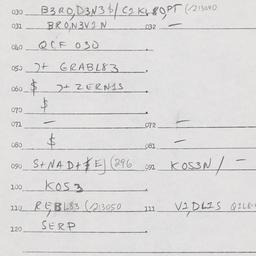 030 B3RO,D3N3 b/ C2K480PT (/213040
031 BRON3V2N 032 —
040 QCF 030
050 >+ GRABL83
060 $ >+ ZERN1S
070 $
071 — 072 —
080 $ 081 —
090 S+NAD+$EJ (296 091 KOS3N / —
100 KOS3
110 REBL83 (/213050 111 V2,DL2S
120 SERP